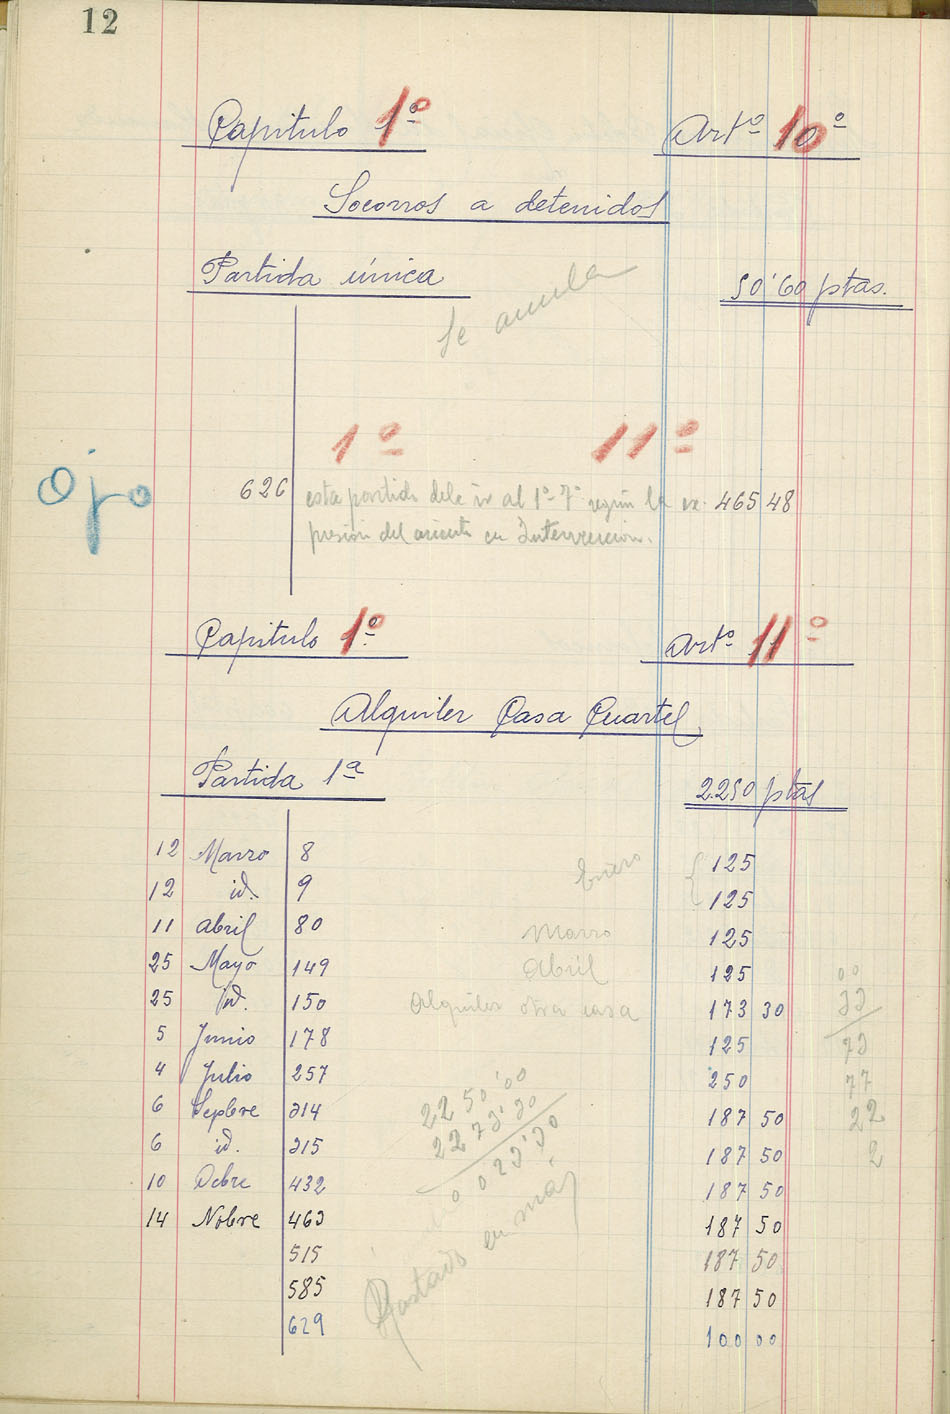 12
Capitulo 1º Artº 10º
Socorros a detenidos
Partida única 50'60 ptas.
Se anula
1º 11º
Ojo
626 esta partida debe ir al 1º-7º según la ex- 465 48
presión del asiento en Intervención.
Capitulo 1º Artº 11º
Alquiler Casa Cuartel
Partida 1ª 2.250 ptas
12 Marzo 8 Enero { 125
12 id. 9 125
11 Abril 80 Marzo 125
25 Mayo 149 Abril 125
25 id. 150 Alquiler otra casa 173 30
5 Junio 178 125
4 Julio 257 250
6 Sepbre 314 187 50
6 id. 315 187 50
10 Octbre 432 187 50
14 Nobre 463 187 50
515 187 50
585 187 50
629 100 00
2250'00
2273'30
0023'30
Gastado en más
00
33
73
77
22
2